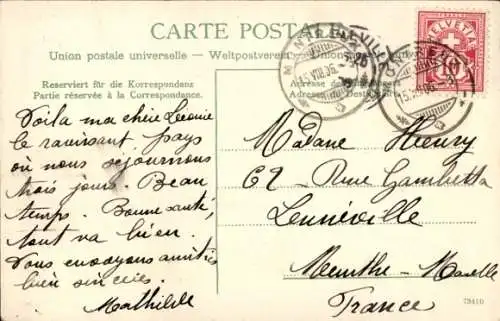 CARTE POSTALE
Union postale universelle – Weltpostverein – Union
Reserviert für die Korrespondenz
Partie réservée à la Correspondance.
HELVETIA
Voila ma chère Leonie
le ravissant pays
où nous séjournons
trois jours. Beau
temps. Bonne santé,
tout va bien.
Vous envoyons amitiés
bien sincères.
Mathilde
Madame Henry
62 - Rue Gambetta
Lunéville
Meurthe - Moselle
France